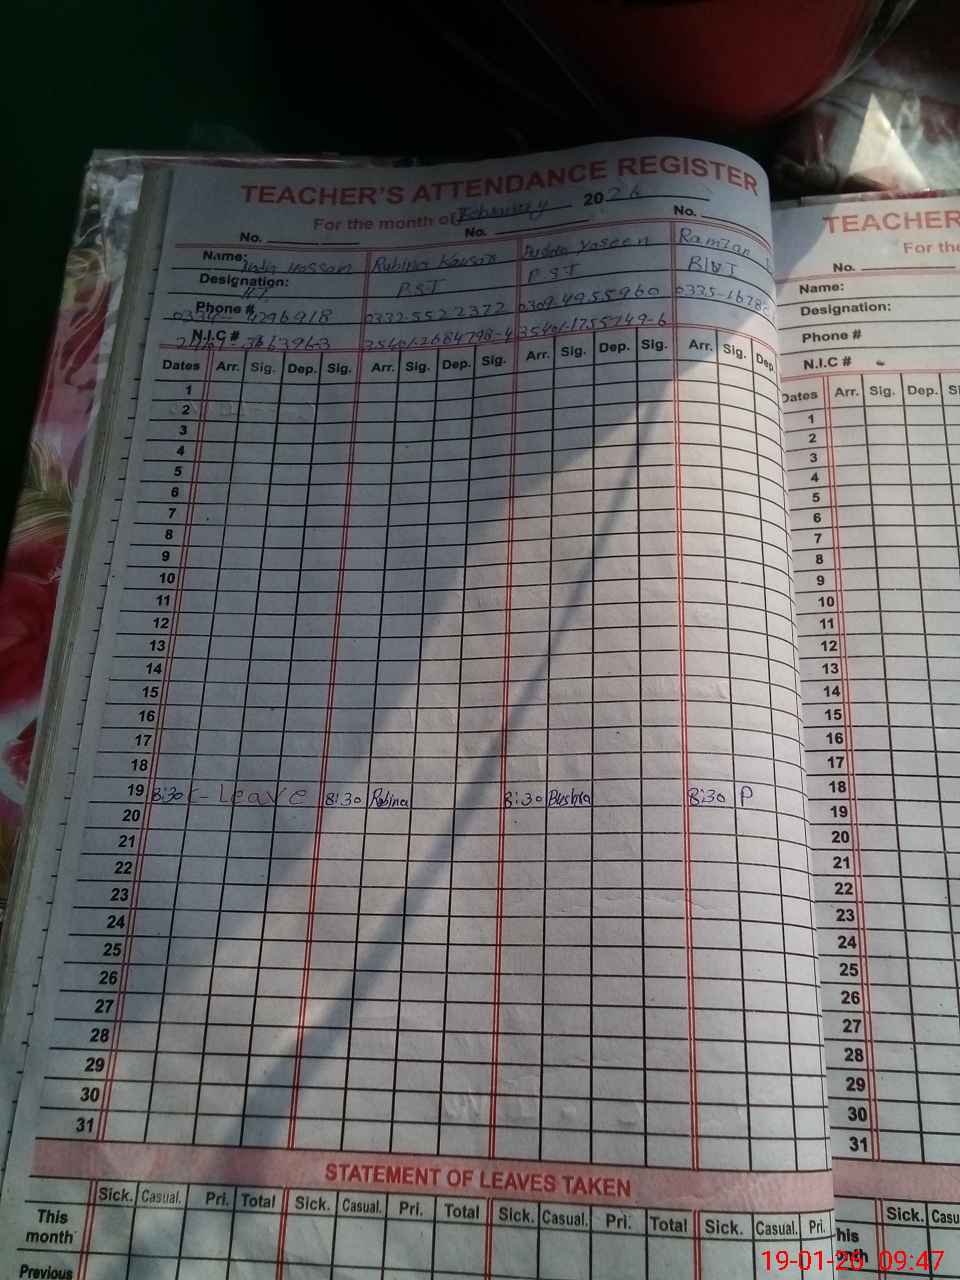 TEACHER'S ATTENDANCE REGISTER
For the month of February 2026
No. No. No.
Name: Hassan Rubina Kausar Bushra Yaseen Ramzan
Designation: PST PST
Phone # 4296918 0332-5522372 0309-4955960 0335-1678
N.I.C # 35401-2684798-4 35401-1755749-6
Dates Arr. Sig. Dep. Sig. Arr. Sig. Dep. Sig. Arr. Sig. Dep. Sig. Arr. Sig. Dep.
1
2
3
4
5
6
7
8
9
10
11
12
13
14
15
16
17
18
19 8:30 C-Leave 8:30 Rubina 8:30 Bushra 8:30 P
20
21
22
23
24
25
26
27
28
29
30
31
STATEMENT OF LEAVES TAKEN
Sick. Casual. Pri. Total Sick. Casual. Pri. Total Sick. Casual. Pri. Total Sick. Casual. Pri.
This month
Previous
TEACHER
For the
No.
Name:
Designation:
Phone #
N.I.C #
Dates Arr. Sig. Dep.
1
2
3
4
5
6
7
8
9
10
11
12
13
14
15
16
17
18
19
20
21
22
23
24
25
26
27
28
29
30
31
Sick. Casu
his
nth
19-01-26 09:47